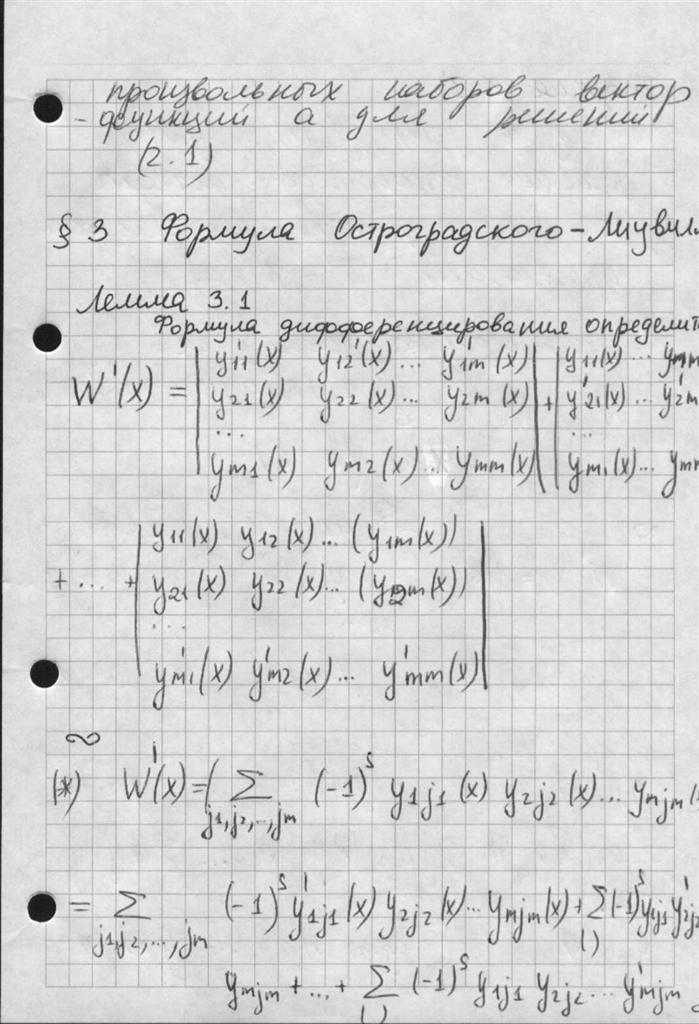 произвольных наборов вектор
- функций а для решений
(2.1)
§ 3 Формула Остроградского-Лиувилл
Лемма 3.1
Формула дифференцирования определит
W'(x) = | y'11(x) y'12(x) ... y'1m(x) | + | y11(x) ... y1m
| y21(x) y22(x) ... y2m(x) | | y'21(x) ... y'2m
... ...
| ym1(x) ym2(x) ... ymm(x) | | ym1(x) ... ymm
| y11(x) y12(x) ... (y1m(x)) |
+ ... + | y21(x) y22(x) ... (y2m(x)) |
...
| y'm1(x) y'm2(x) ... y'mm(x) |
∾
(*) W'(x) = ( ∑ (-1)^s y1j1(x) y2j2(x) ... ymjm(
j1,j2,...,jm
= ∑ (-1)^s y'1j1(x) y2j2(x) ... ymjm(x) + ∑ (-1)^s y1j1 y'2j2
j1,j2,...,jm ( )
ymjm + ... + ∑ (-1)^s y1j1 y2j2 ... y'mjm
( )